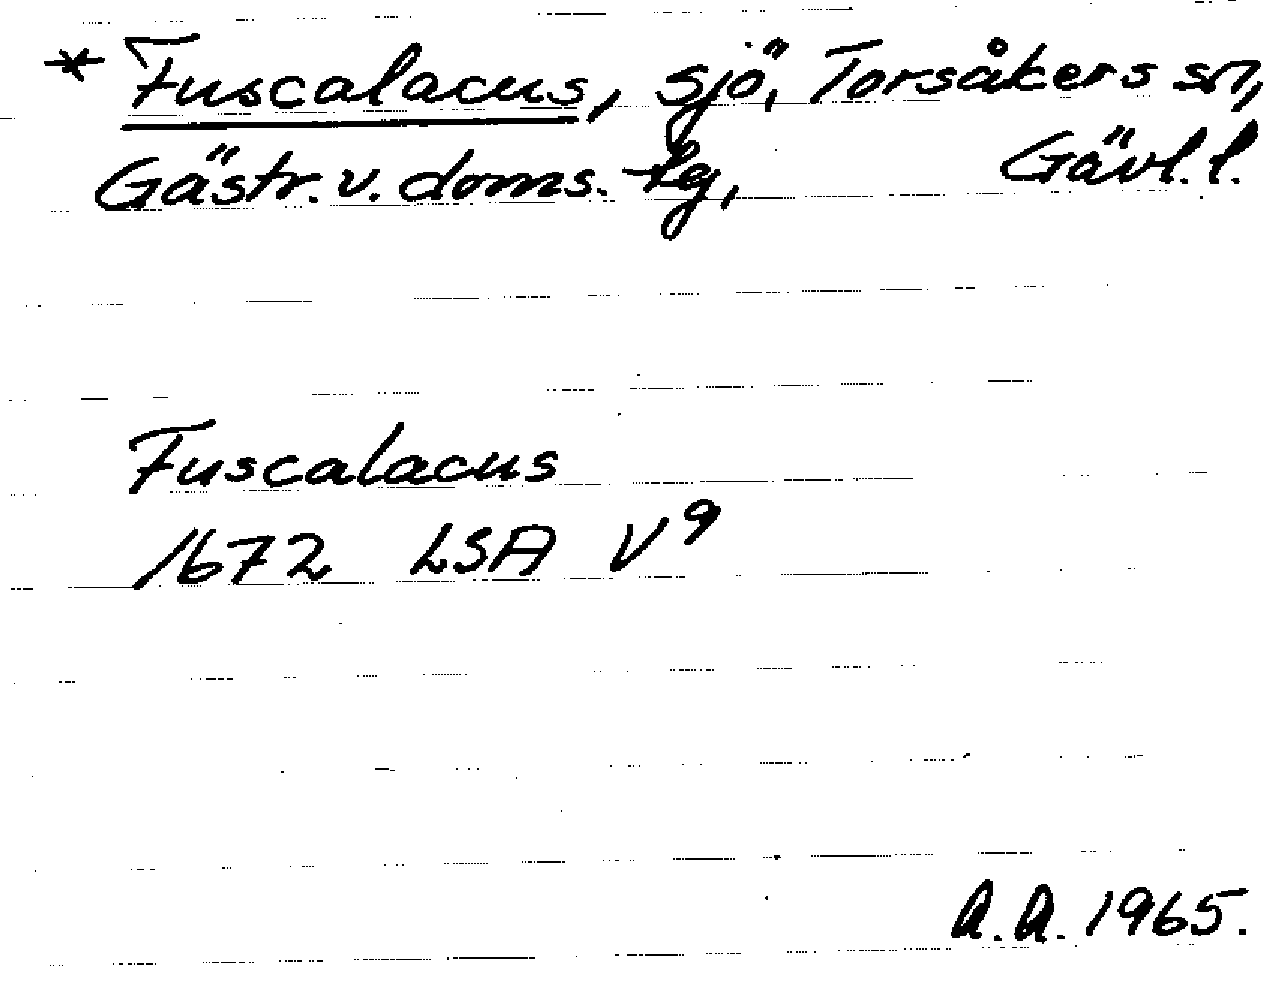 * Fuscalacus, sjö, Torsåkers sn,
Gästr. v. doms. tg, Gävl. l.
Fuscalacus
1672 LSA V⁹
A.A. 1965.